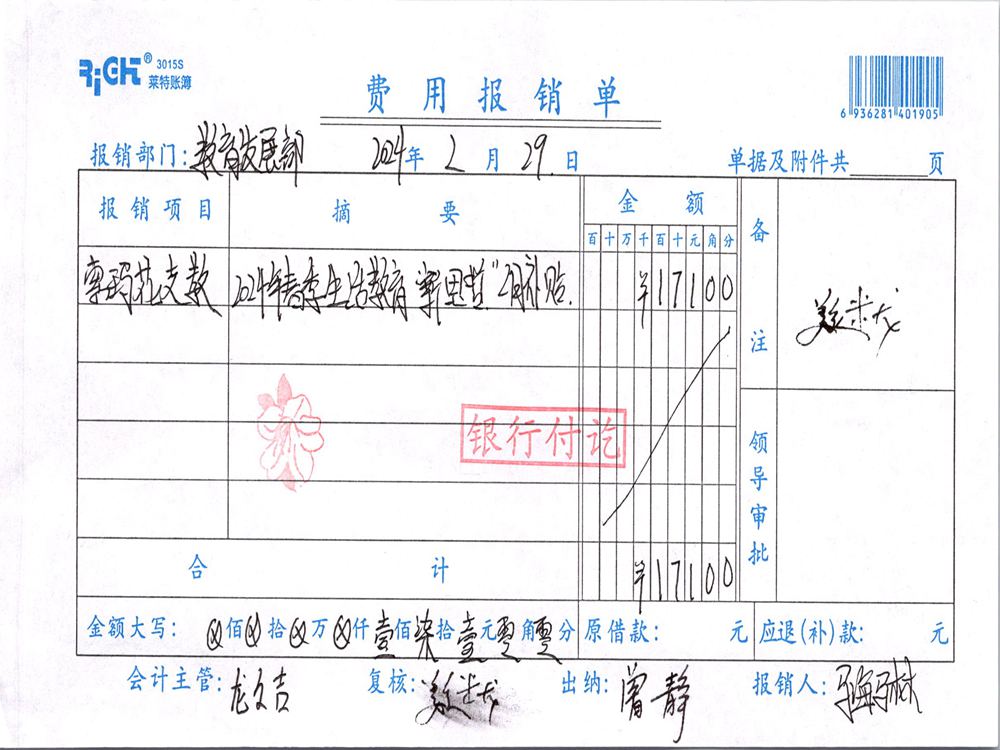 RiGHT® 3015S
莱特账簿
费用报销单
6 936281 401905
报销部门：教育发展部 2024年2月29日 单据及附件共 页
报销项目 摘要 金额 备注
百十万千百十元角分
2024年春季生活教育 2月补贴. ¥17100
银行付讫
领导审批
合计 ¥17100
金额大写：⊗佰⊗拾⊗万⊗仟壹佰柒拾壹元零角零分 原借款： 元 应退(补)款： 元
会计主管：龙文吉 复核： 出纳：曾静 报销人：